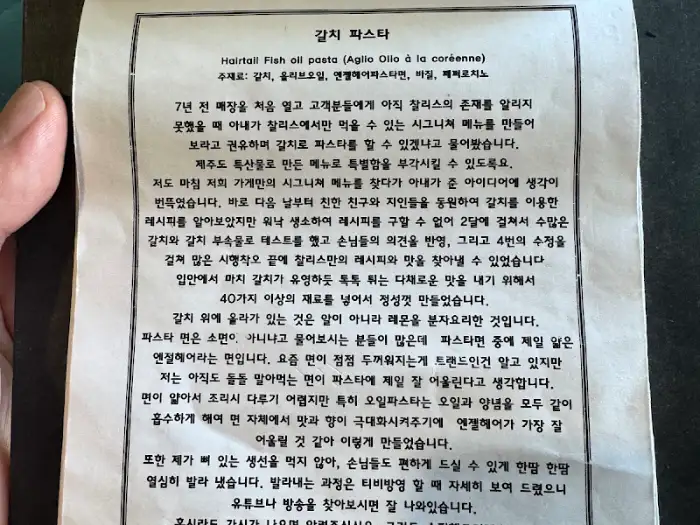 갈치 파스타
Hairtail Fish oil pasta (Aglio Olio à la coréenne)
주재료: 갈치, 올리브오일, 엔젤헤어파스타면, 바질, 페페로치노
7년 전 매장을 처음 열고 고객분들에게 아직 찰리스의 존재를 알리지
못했을 때 아내가 찰리스에서만 먹을 수 있는 시그니쳐 메뉴를 만들어
보라고 권유하며 갈치로 파스타를 할 수 있겠냐고 물어봤습니다.
제주도 특산물로 만든 메뉴로 특별함을 부각시킬 수 있도록요.
저도 마침 저희 가게만의 시그니쳐 메뉴를 찾다가 아내가 준 아이디어에 생각이
번뜩였습니다. 바로 다음 날부터 친한 친구와 지인들을 동원하여 갈치를 이용한
레시피를 알아보았지만 워낙 생소하여 레시피를 구할 수 없어 2달에 걸쳐서 수많은
갈치와 갈치 부속물로 테스트를 했고 손님들의 의견을 반영, 그리고 4번의 수정을
걸쳐 많은 시행착오 끝에 찰리스만의 레시피와 맛을 찾아낼 수 있었습니다
입안에서 마치 갈치가 유영하듯 톡톡 튀는 다채로운 맛을 내기 위해서
40가지 이상의 재료를 넣어서 정성껏 만들었습니다.
갈치 위에 올라가 있는 것은 알이 아니라 레몬을 분자요리한 것입니다.
파스타 면은 소면이 아니냐고 물어보시는 분들이 많은데 파스타면 중에 제일 얇은
엔젤헤어라는 면입니다. 요즘 면이 점점 두꺼워지는게 트랜드인건 알고 있지만
저는 아직도 돌돌 말아먹는 면이 파스타에 제일 잘 어울린다고 생각합니다.
면이 얇아서 조리시 다루기 어렵지만 특히 오일파스타는 오일과 양념을 모두 같이
흡수하게 해여 면 자체에서 맛과 향이 극대화시켜주기에 엔젤헤어가 가장 잘
어울릴 것 같아 이렇게 만들었습니다.
또한 제가 뼈 있는 생선을 먹지 않아, 손님들도 편하게 드실 수 있게 한땀 한땀
열심히 발라 냈습니다. 발라내는 과정은 티비방영 할 때 자세히 보여 드렸으니
유튜브나 방송을 찾아보시면 잘 나와있습니다.